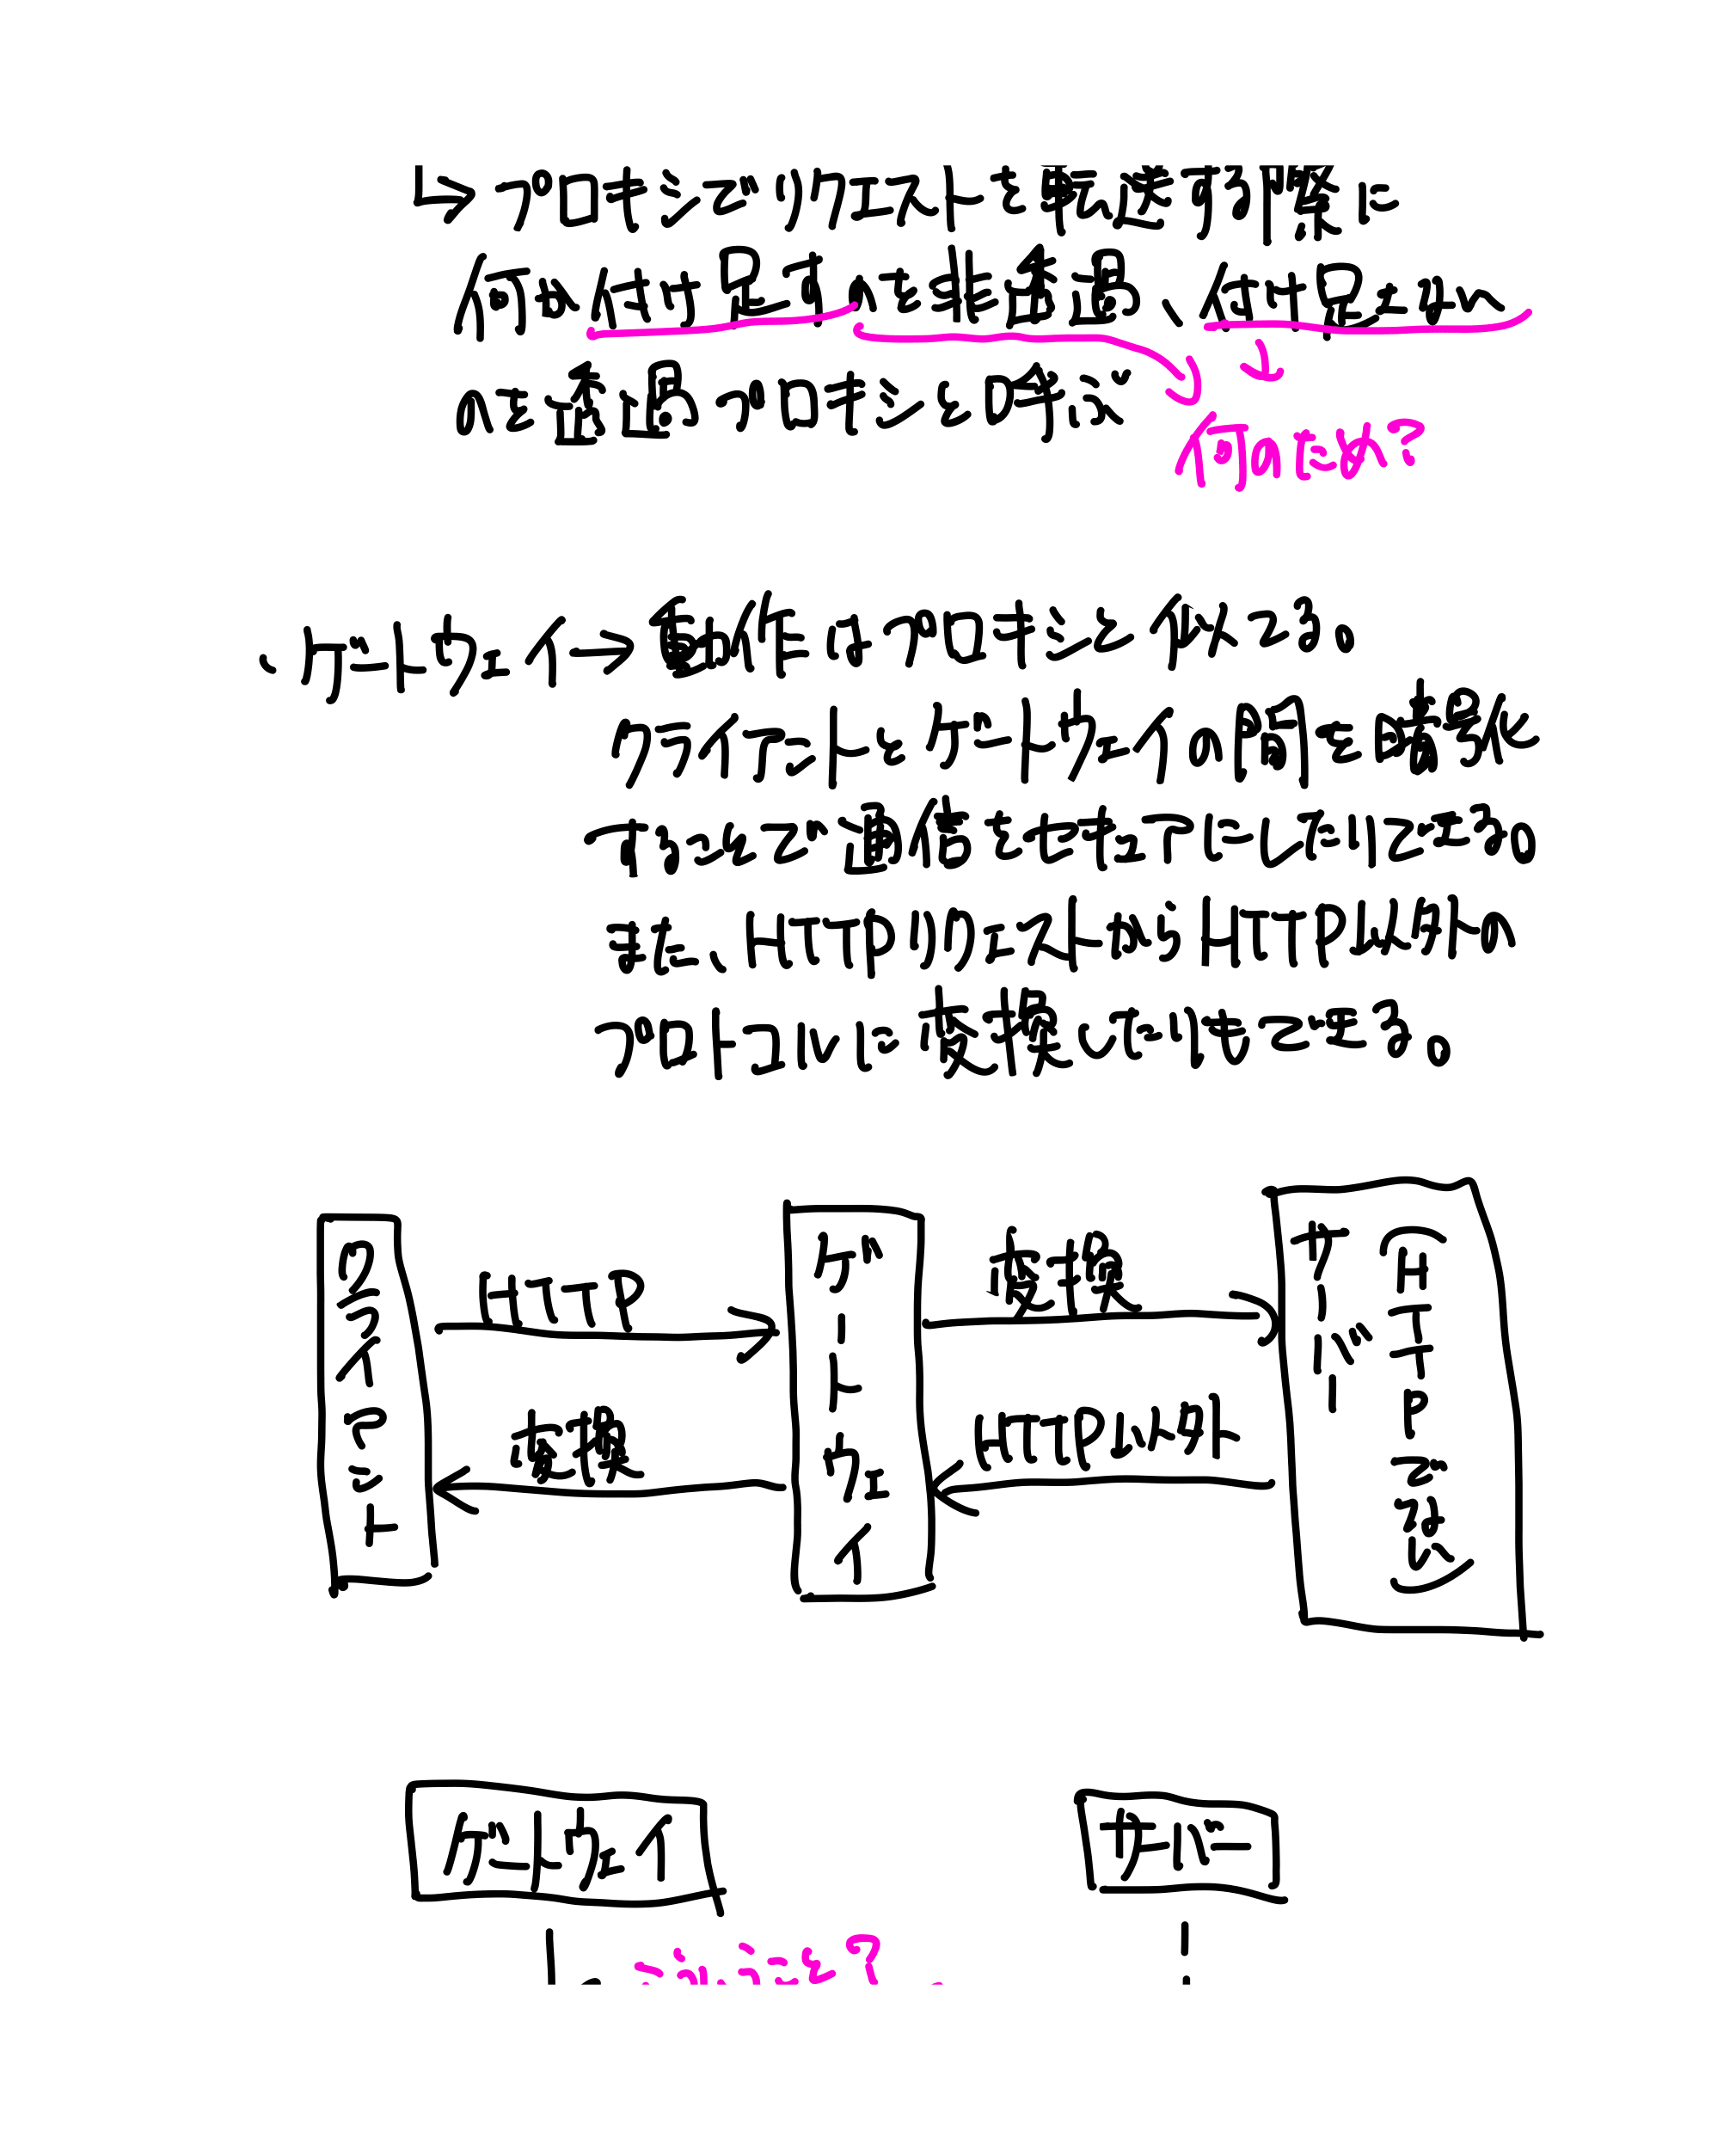 ↳プロキシでリクエストを転送する際に
何か付け足すのを非透過、付け足さない
のを透過プロキシと呼ぶ
何のため?
・ゲートウェイ→動作はプロキシと似てる。
クライアントとゲートウェイの間を暗号化
することで通信をセキュアにしたりできる。
また、HTTPリクエストからHTTP以外の
プロトコルに変換したりもできる。
クライアント
HTTP
変換
ゲートウェイ
変換
HTTP以外
サーバー
(HTTPでない)
ゲートウェイ
サーバー